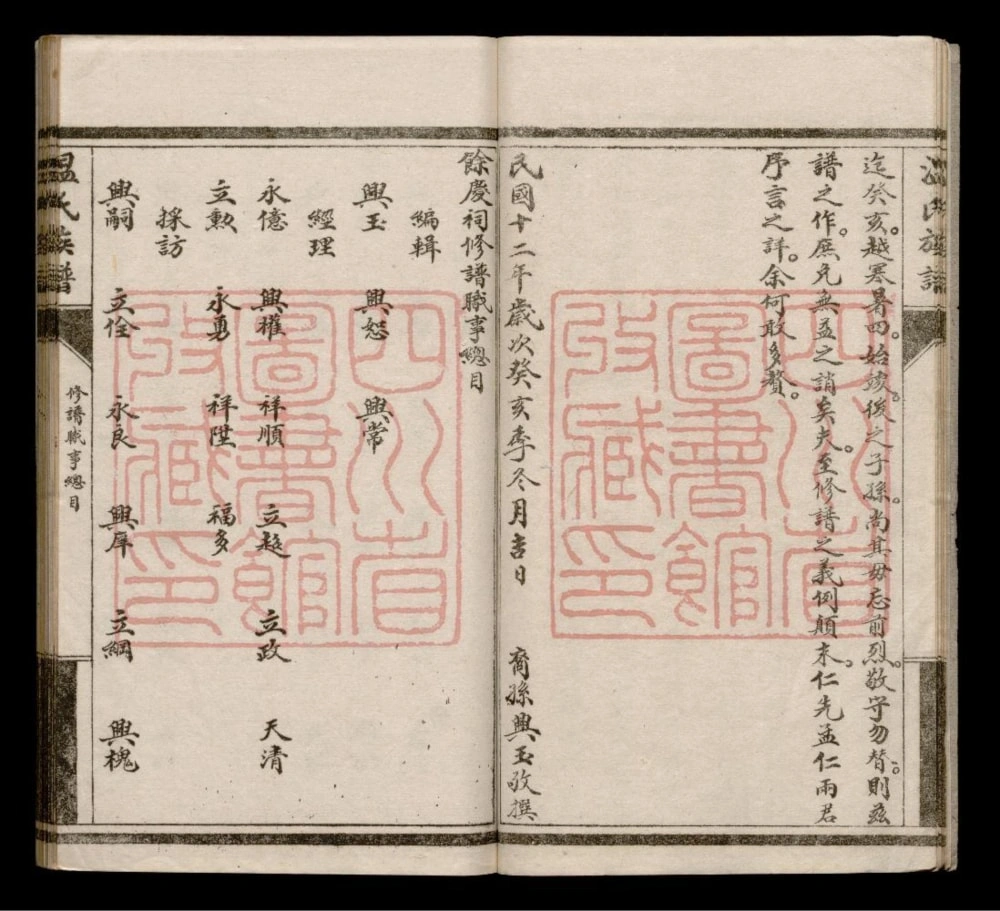 溫氏族譜
迄癸亥。越寒暑四。始竣。後之子孫。尚其毋忘前烈。敬守勿替。則茲
譜之作。庶免無益之誚矣夫。至修譜之義例顛末。仁先孟仁兩君
序言之詳。余何敢多贅。
民國十二年歲次癸亥季冬月吉日 裔孫興玉敬撰
餘慶祠修譜職事總目
編輯
興玉 興恕 興常
經理
永億 興權 祥順 立超 立政 天清
立勲 永勇 祥陞 福多
採訪
興嗣 立佺 永良 興犀 立綱 興槐
溫氏族譜
修譜職事總目
四川省
圖書館
收藏印
四川省
圖書館
收藏印